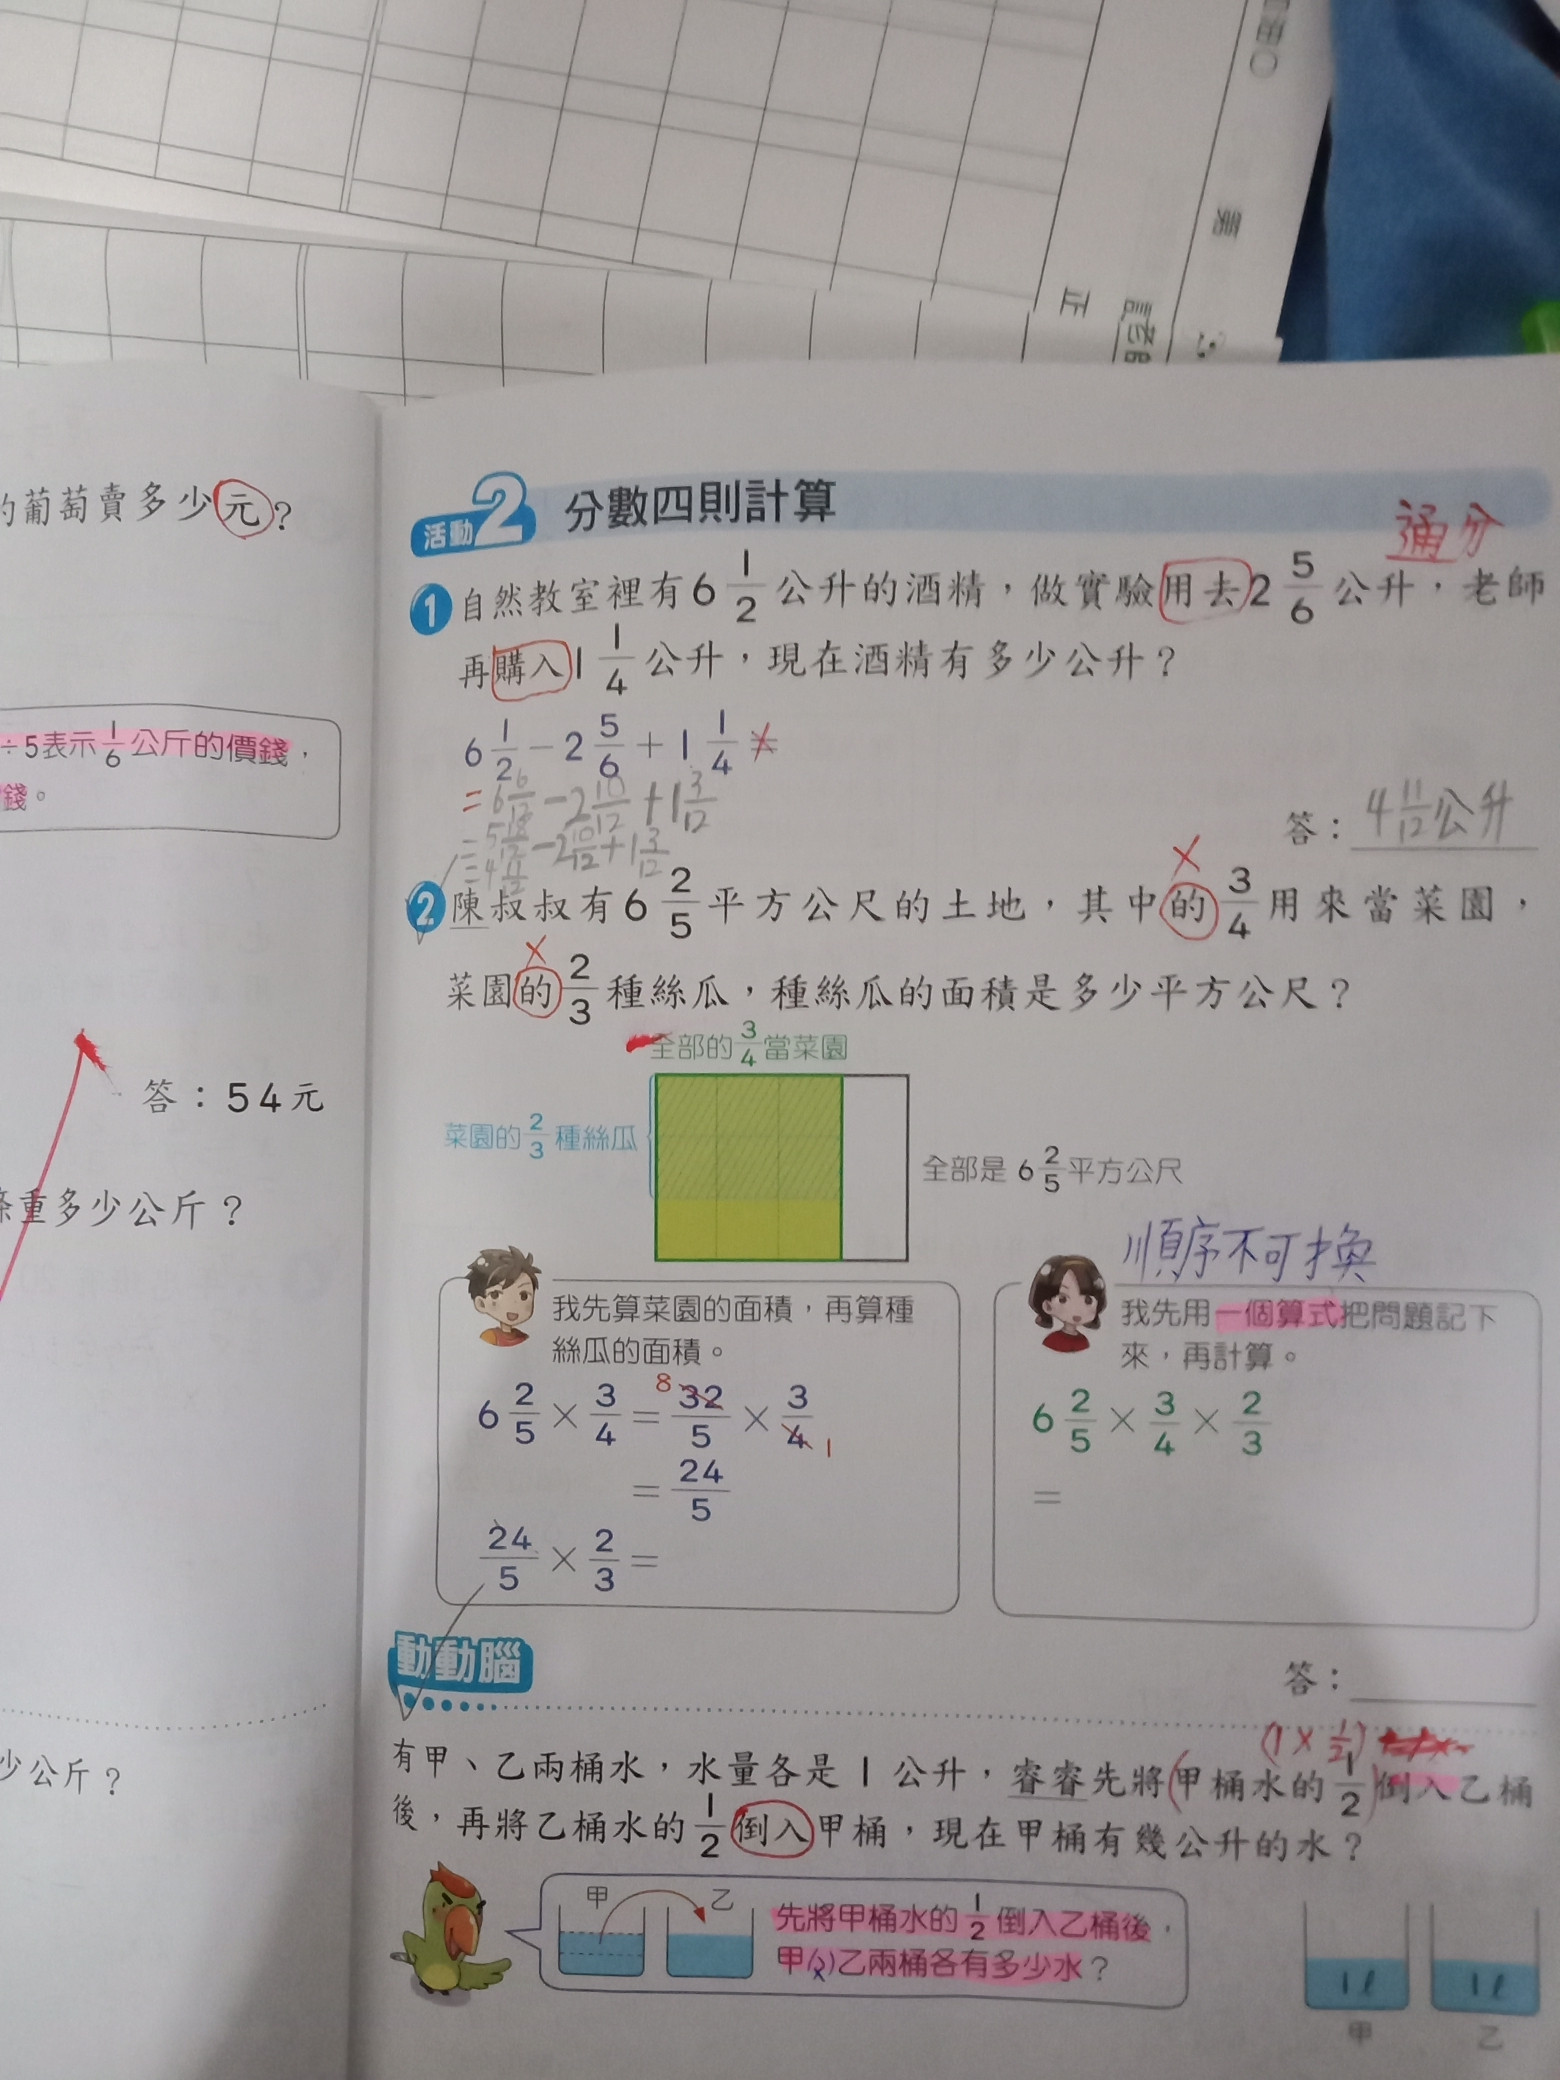 的葡萄賣多少元?
÷5表示1/6公斤的價錢，
錢。
答：54元
重多少公斤？
少公斤？
活動2 分數四則計算
通分
1 自然教室裡有6 1/2 公升的酒精，做實驗用去2 5/6 公升，老師
再購入1 1/4 公升，現在酒精有多少公升？
6 1/2 − 2 5/6 + 1 1/4 =
= 6 6/12 − 2 10/12 + 1 3/12
= 5 18/12 − 2 10/12 + 1 3/12
= 4 11/12
答：4 11/12 公升
× ×
2 陳叔叔有6 2/5 平方公尺的土地，其中的 3/4 用來當菜園，
菜園的 2/3 種絲瓜，種絲瓜的面積是多少平方公尺？
全部的 3/4 當菜園
菜園的 2/3 種絲瓜
全部是 6 2/5 平方公尺
我先算菜園的面積，再算種
絲瓜的面積。
6 2/5 × 3/4 = 32/5 × 3/4
8 1
= 24/5
24/5 × 2/3 =
順序不可換
我先用一個算式把問題記下
來，再計算。
6 2/5 × 3/4 × 2/3
=
答：
動動腦
(1 × 1/2)
有甲、乙兩桶水，水量各是 1 公升，睿睿先將(甲桶水的 1/2)倒入乙桶
後，再將乙桶水的 1/2 倒入甲桶，現在甲桶有幾公升的水？
甲 乙
先將甲桶水的 1/2 倒入乙桶後，
甲、乙兩桶各有多少水？
1ℓ 1ℓ
甲 乙